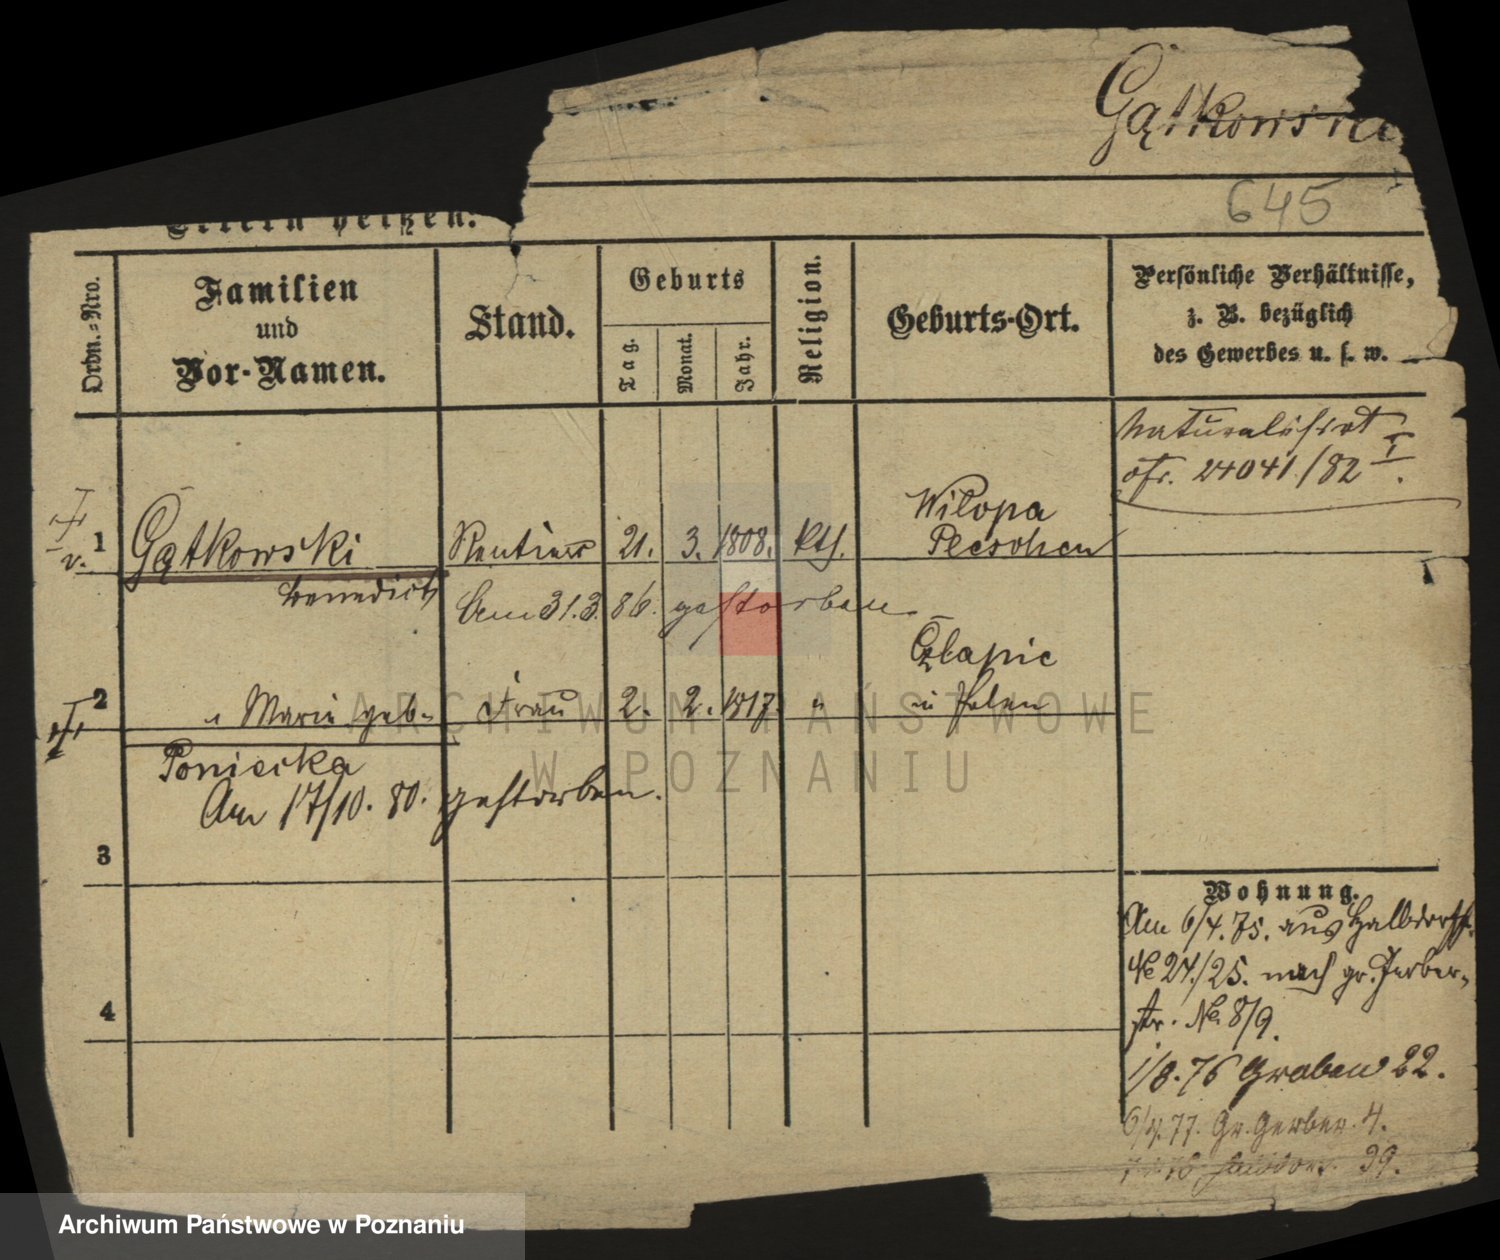 Gątkowski
645
Eltern heißen:
Ordn.=Nro.
Familien
und
Vor-Namen.
Stand.
Geburts
Tag.
Monat.
Jahr.
Religion.
Geburts-Ort.
Persönliche Verhältnisse,
z. B. bezüglich
des Gewerbes u. s. w.
Naturalisirt
cfr. 24041/82 I.
1
Gątkowski
Benedict
Rentier
21.
3.
1808.
kth.
Wilcpa
Pleschen
Am 31.3.86. gestorben
2
" Marie geb.
Poniecka
Frau
2.
2.
1817.
"
Człapic
in Polen
Am 17/10. 80. gestorben.
3
4
Wohnung.
Am 6/4.75. aus Halbdorfst.
No 24./25. nach gr. Gerber-
str. No. 8/9.
1/8.76 Graben 22.
6/4.77. Gr. Gerber. 4.
39.
ARCHIWUM PAŃSTWOWE
W POZNANIU
Archiwum Państwowe w Poznaniu